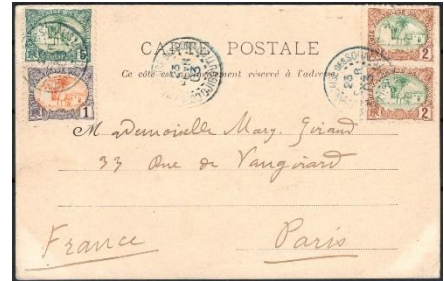 CARTE POSTALE
Ce côté est exclusivement réservé à l'adresse
Mademoiselle Mary. Giraud
33 Rue de Vaugirard
Paris
France
1
2
2